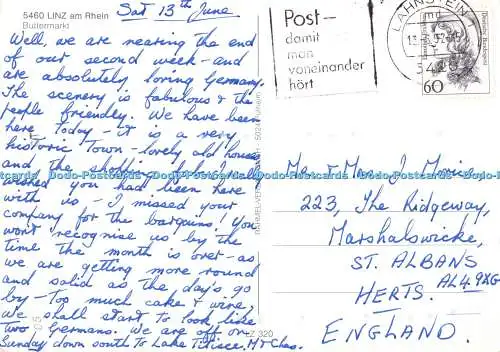 5460 LINZ am Rhein
Buttermarkt
Sat 13th June
Well, we are nearing the end
of our second week - and
are absolutely loving Germany.
The scenery is fabulous & the
people friendly. We have been
here today - it is a very
historic town - lovely old houses
and the shopping! I really
wished you had been here
with us - I missed your
company for the bargains! You
won't recognise us by the
time the month is over - as
we are getting more round
and solid as the days go
by - too much cake & wine.
We shall start to look like
two Germans. We are off on
Sunday down south to Lake Titisee. M & Chas.
LZ 320
Post -
damit
man
voneinander
hört
LAHNSTEIN
60
Mr & Mrs J
223, The Ridgeway,
Marshalswicke,
ST. ALBANS
HERTS. AL4 9XG
ENGLAND.
Dodo-Postcards Dodo-Postcards Dodo-Postcards Dodo-Postcards